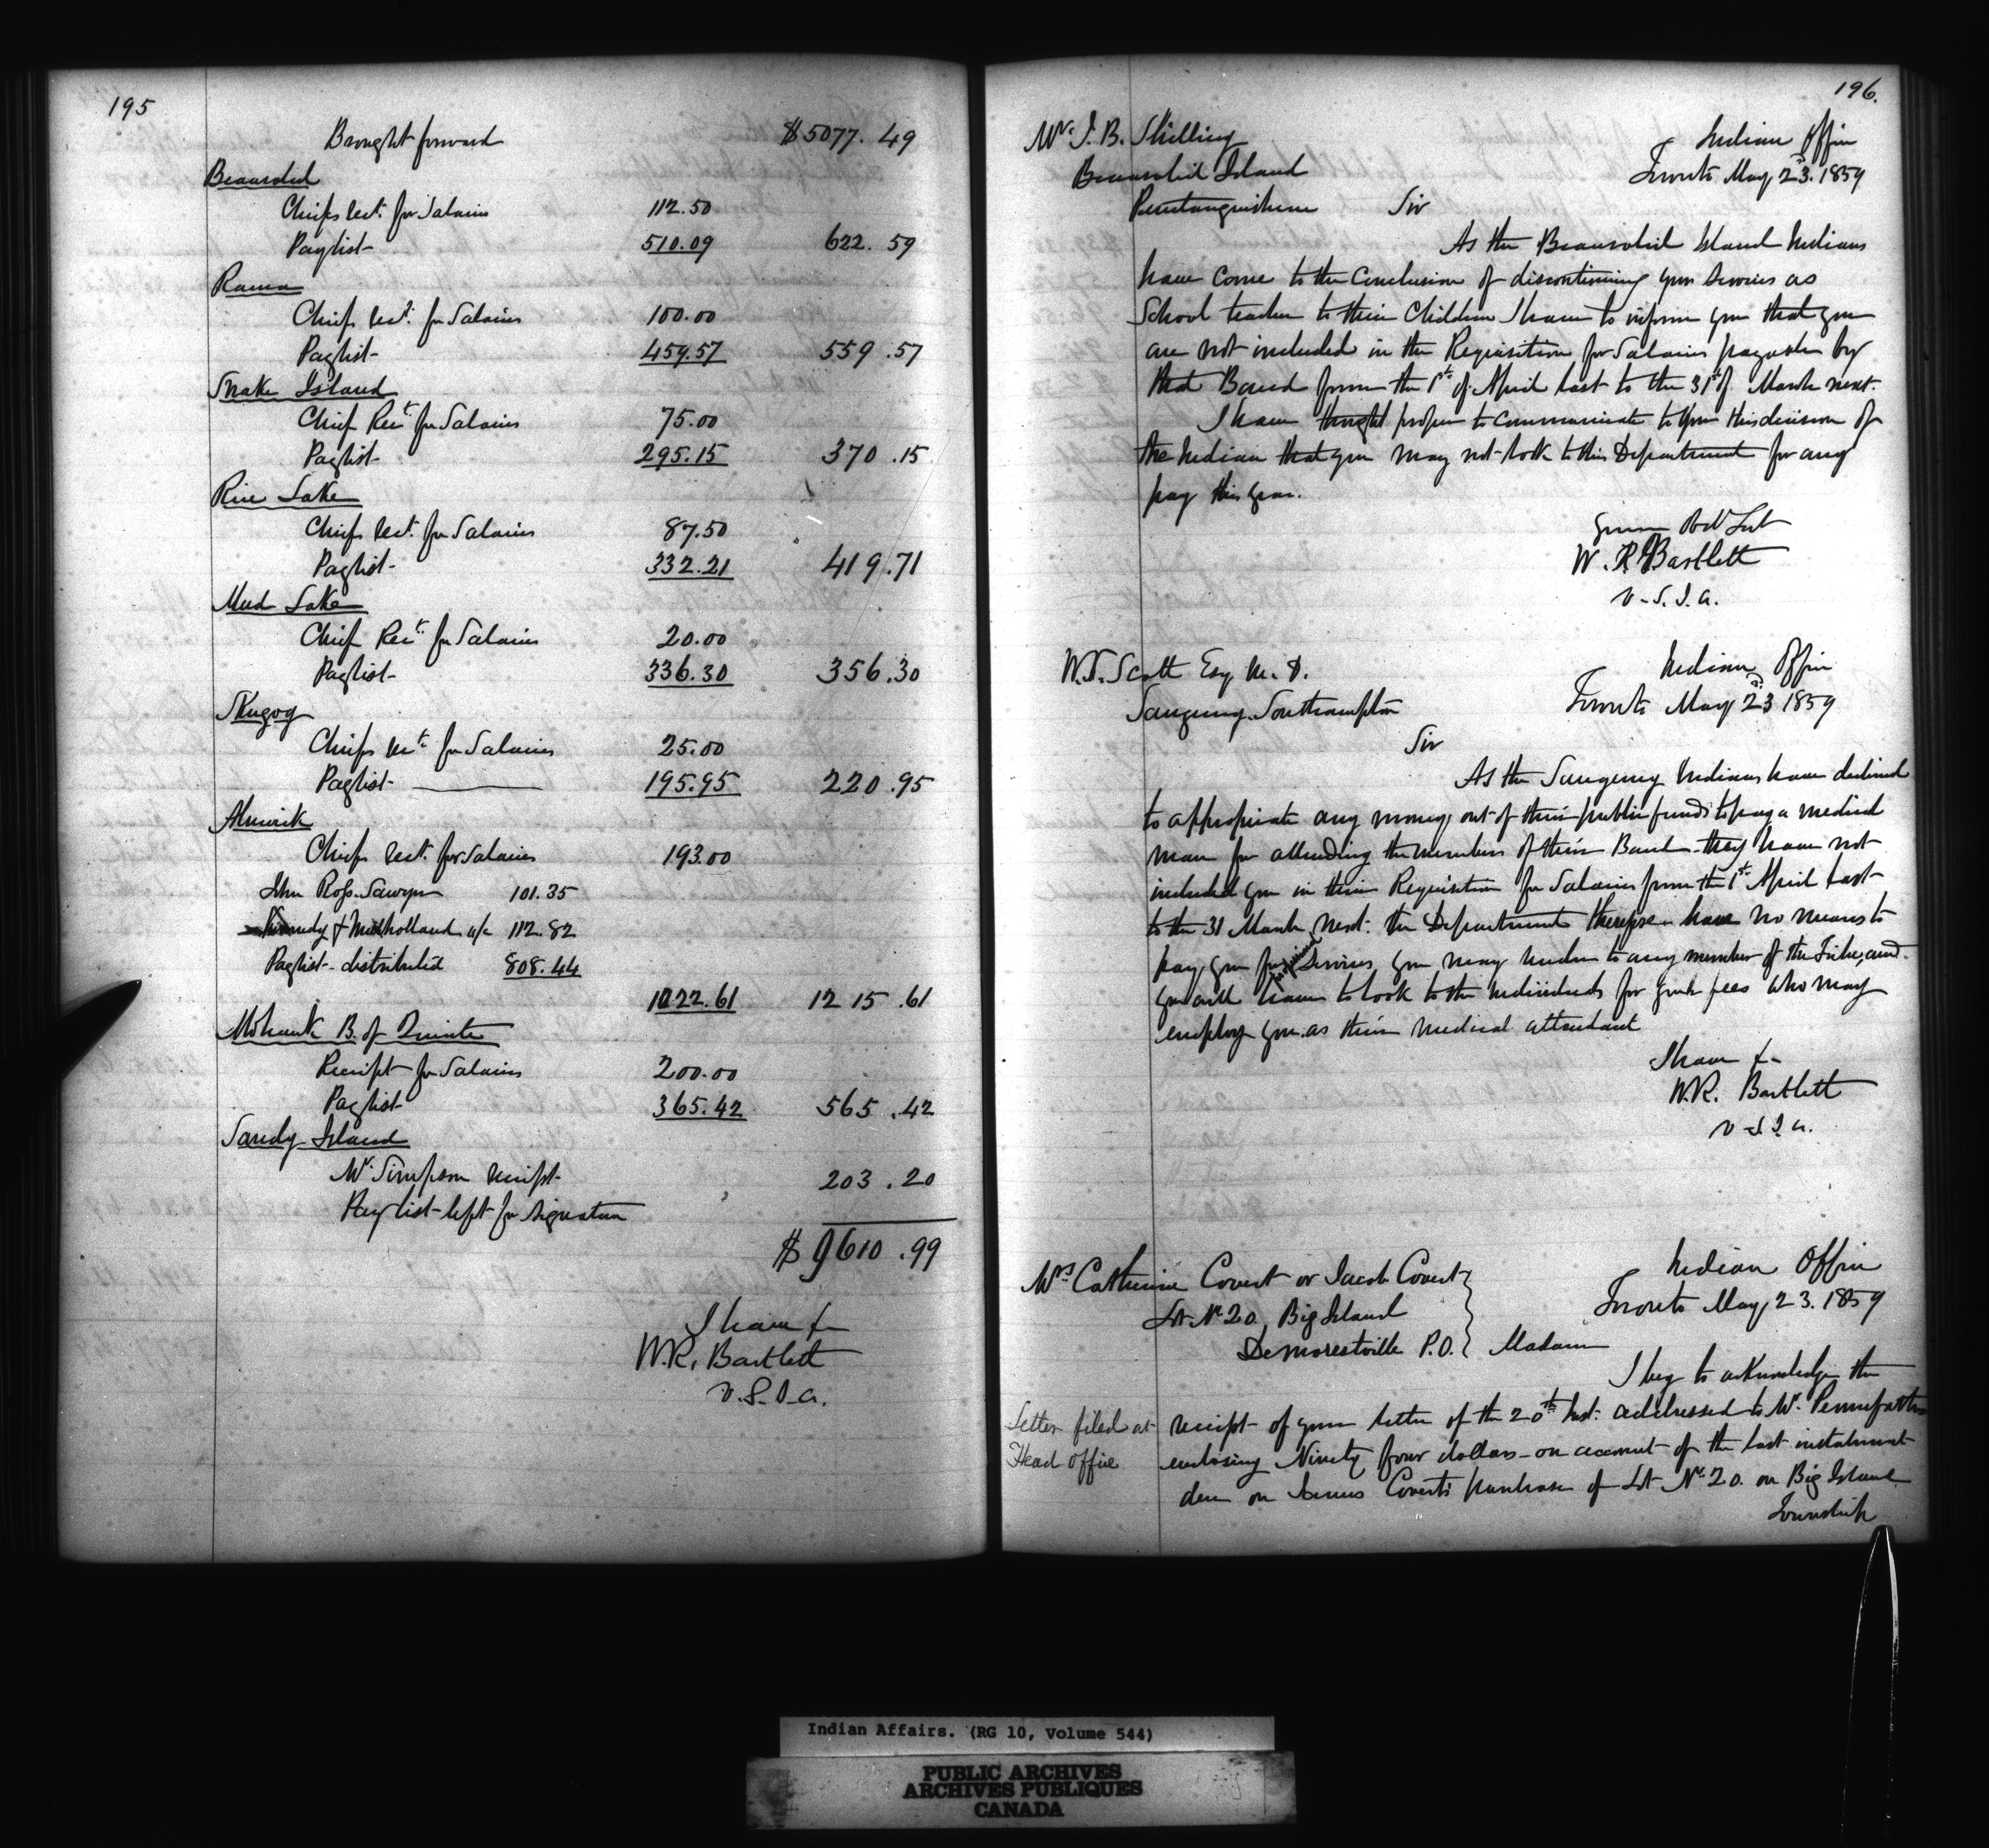 195
Brought forward $5077.49
Beausoleil
Chiefs Rect. for Salaries 112.50
Paylist 510.09 622.59
Rama
Chiefs Rect. for Salaries 100.00
Paylist 459.57 559.57
Snake Island
Chief Rect. for Salaries 75.00
Paylist 295.15 370.15
Rice Lake
Chiefs Rect. for Salaries 87.50
Paylist 332.21 419.71
Mud Lake
Chief Rect. for Salaries 20.00
Paylist 336.30 356.30
Skugog
Chiefs Rect. for Salaries 25.00
Paylist 195.95 220.95
Alnwick
Chiefs Rect. for Salaries 193.00
John Ross Sawyer 101.35
Kennedy & Mulholland a/c 112.82
Paylist distributed 808.44
1022.61 1215.61
Mohawk B. of Quinte
Receipt for Salaries 200.00
Paylist 365.42 565.42
Sandy Island
Mr. Simpson receipt 203.20
Paylist left for signature
$9610.99
I have &
W.R. Bartlett
V.S.I.A.
196.
Mr. J. B. Skilling Indian Office
Beausoleil Island Toronto May 23. 1859
Penetanguishene Sir
As the Beausoleil Island Indians
have come to the conclusion of discontinuing your services as
School teacher to their Children I have to inform you that you
are not included in the Requisition for Salaries payable by
that Band from the 1st of April last to the 31st of March next.
I have thought proper to communicate to you this decision of
the Indians that you may not look to this Department for any
pay this year.
Your Obt Svt
W. R. Bartlett
V.S.I.A.
W.S. Scott Esq. M.D. Indian Office
Saugeeng. Southampton Toronto May 23 1859
Sir
As the Saugeeng Indians have declined
to appropriate any money out of their public funds to pay a medical
man for attending the members of their Band they have not
included you in their Requisition for Salaries from the 1st April last
to the 31 March next: the Department therefore have no means to
pay you for Services you may render to any member of the Tribe, and
you will have to look to the individuals for your fees who may
employ you as their medical attendant
I have &
W.R. Bartlett
V.S.I.A.
Mrs. Catherine Covert or Jacob Covert Indian Office
Lot No. 20. Big Island Toronto May 23. 1859
Demorestville P.O. Madam
I beg to acknowledge the
Letter filed at
Head Office
receipt of your letter of the 20th Inst: addressed to Mr. Pennefather
enclosing Ninety four dollars on account of the last instalment
due on James Covert's purchase of Lot No. 20. on Big Island
Township
Indian Affairs. (RG 10, Volume 544)
PUBLIC ARCHIVES
ARCHIVES PUBLIQUES
CANADA